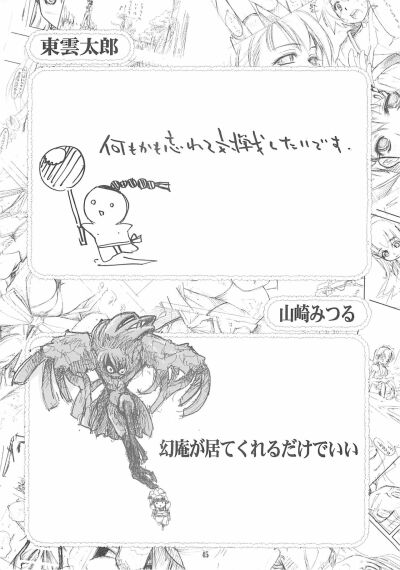 東雲太郎
何もかも忘れて対戦したいです.
山崎みつる
幻庵が居てくれるだけでいい
45